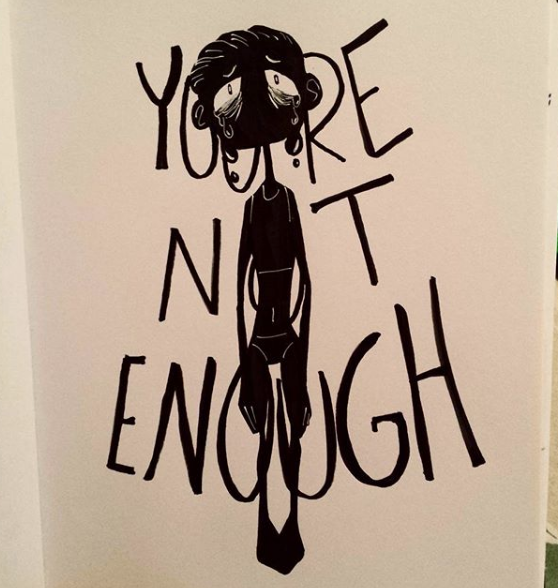 YOU'RE
NOT
ENOUGH